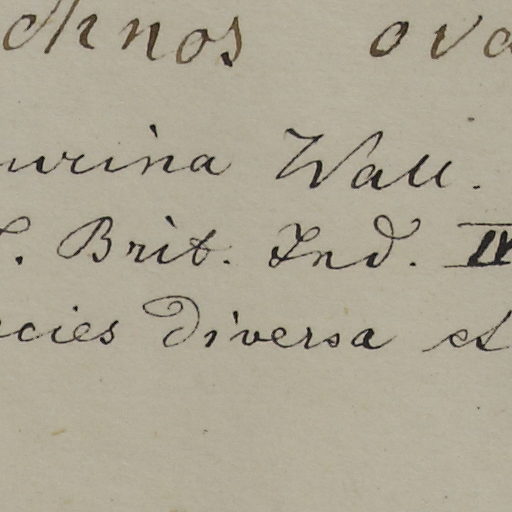 chnos ova
urina Wall.
. Brit. Ind. IV
cies diversa et